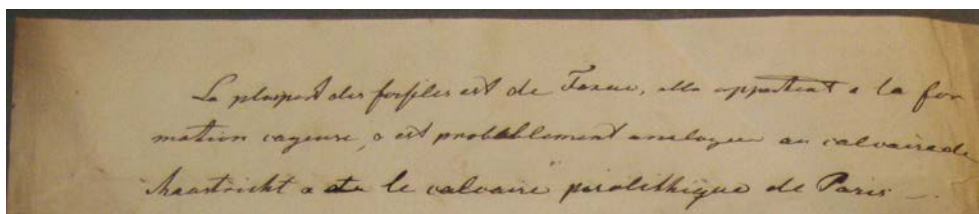 La pluspart des fossiles est de Faxue, elle appartient a la for
mation cayeuse, a est probablement analogue au calcaire de
Maastricht a de le calcaire pisolithique de Paris —